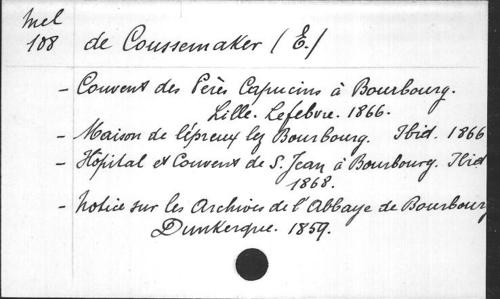 Mel
108 de Coussemaker (E.)
- Couvent des Pères Capucins à Bourbourg.
Lille. Lefebvre. 1866.
- Maison de lépreux lez Bourbourg. Ibid. 1866
- Hôpital et Couvent de S. Jean à Bourbourg. Ibid
1868.
- Notice sur les Archives de l'Abbaye de Bourbourg
Dunkerque. 1859.